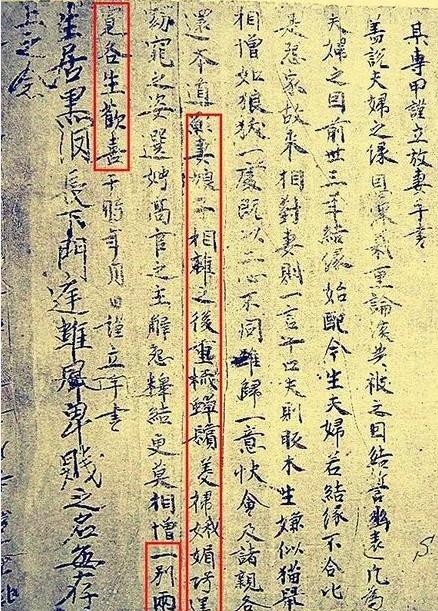 某專甲謹立放妻手書
蓋說夫婦之緣恩深義重論談共被之因結誓幽遠凡為
夫婦之因前世三年結緣始配今生夫婦若結緣不合比
是怨家故來相對妻則一言十口夫則反木生嫌似猫鼠
相憎如狼犺一處既以二心不同難歸一意快會及諸親各
還本道願妻娘子相離之後重梳蟬鬢美掃娥媚巧逞
窈窕之姿選娉高官之主解怨釋結更莫相憎一別兩
寬各生歡喜于時年月日謹立手書
生居黑
門逢難 卑賤之名每存
上之